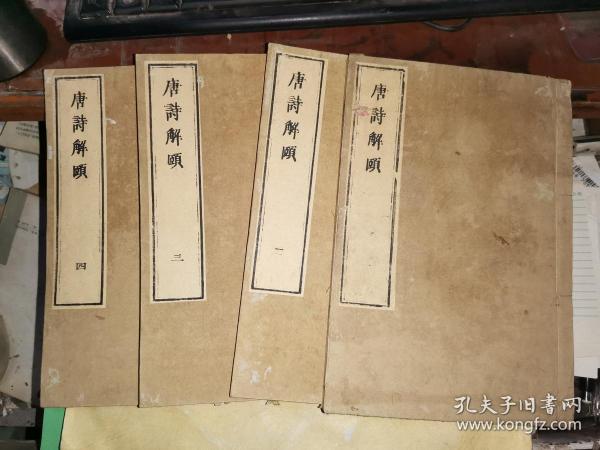 唐詩解頤
唐詩解頤
二
唐詩解頤
三
唐詩解頤
四
孔夫子旧书网
www.kongfz.com